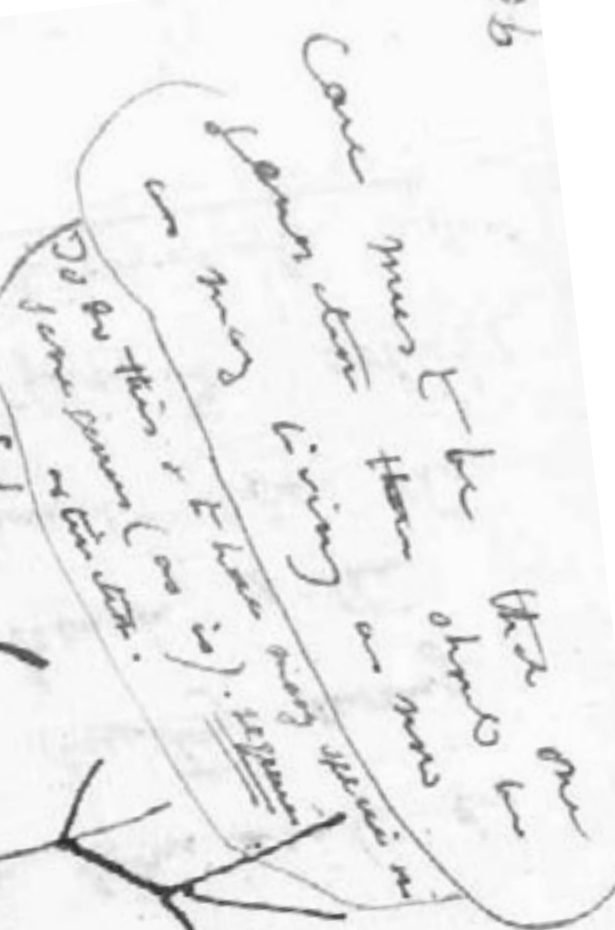 36
Case must be that one
generation then should be
as many living as now
To do this & to have many species in
same genus (as is). requires
extinction.